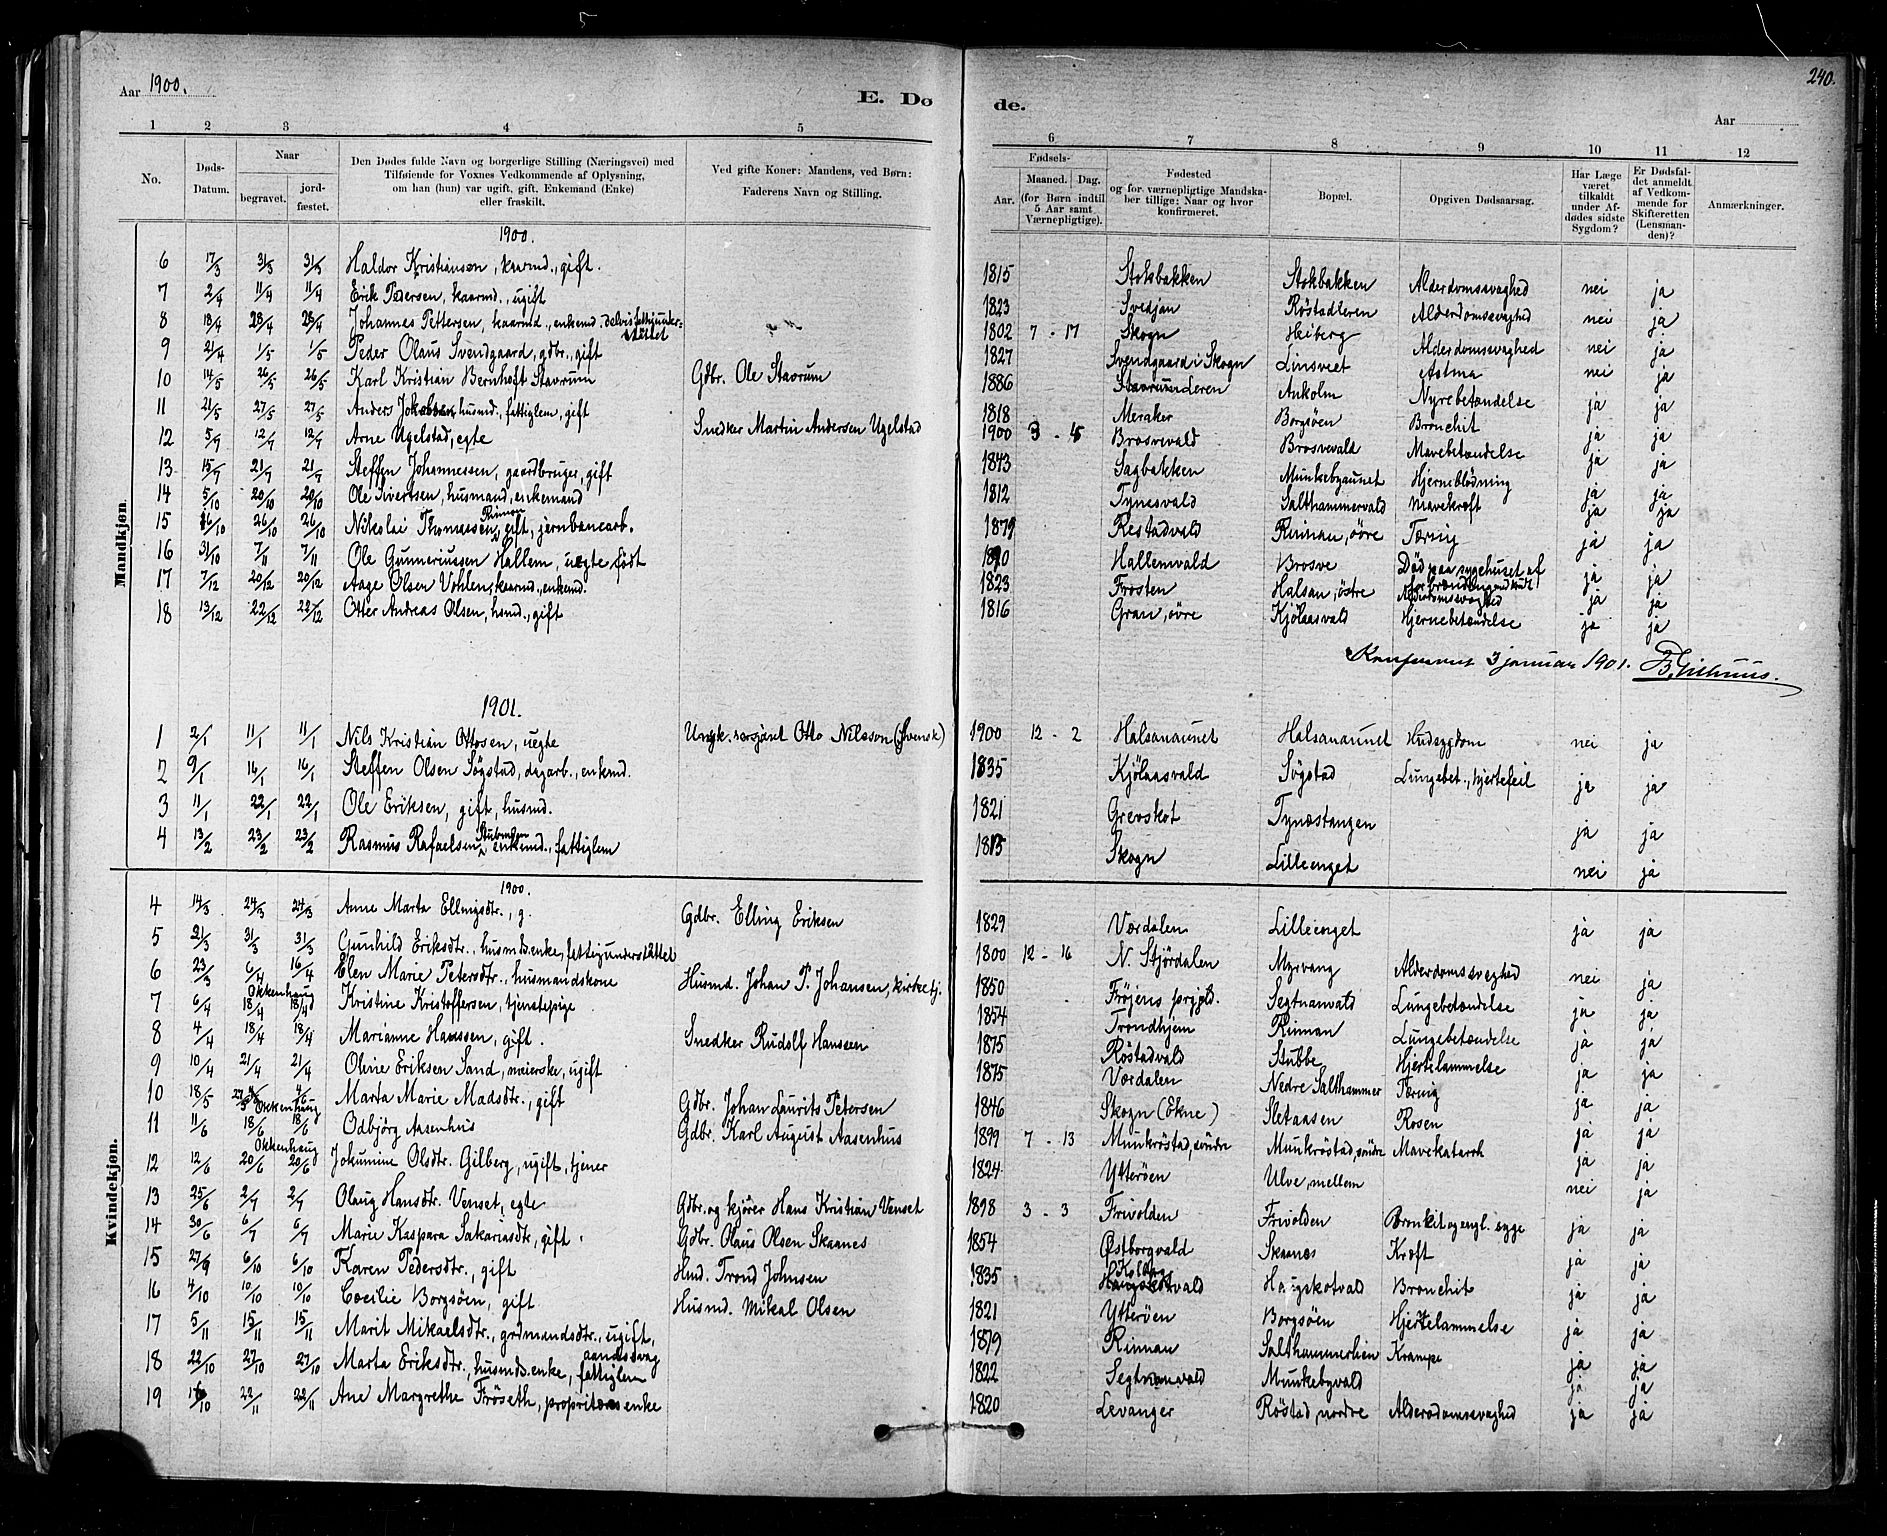 240.
Aar 1900.
E. Dø de.
Aar
1 2 3 4 5 6 7 8 9 10 11 12
No. Døds-Datum. Naar begravet. jordfæstet. Den Dødes fulde Navn og borgerlige Stilling (Næringsvei) med Tilføiende for Voxnes Vedkommende af Oplysning, om han (hun) var ugift, gift, Enkemand (Enke) eller fraskilt. Ved gifte Koner: Mandens, ved Børn: Faderens Navn og Stilling. Fødsels- Aar. Maaned. Dag. (for Børn indtil 5 Aar samt Værnepligtige). Fødested og for værnepligtige Mandskaber tillige: Naar og hvor konfirmeret. Bopæl. Opgiven Dødsaarsag. Har Læge været tilkaldt under Afdødes sidste Sygdom? Er Dødsfaldet anmeldt af Vedkommende for Skifteretten (Lensmanden)? Anmærkninger.
Mandkjøn.
1900.
6 17/3 31/3 31/3 Haldor Kristiansen, kaarmd., gift. 1815 Stokbakken Stokbakken Alderdomssvaghed nei ja
7 2/4 11/4 11/4 Erik Pedersen, kaarmd., ugift 1823 Svedjan Røstadleren Alderdomssvaghed nei ja
8 18/4 28/4 28/4 Johannes Pettersen, kaarmd., enkemd. delvis fattigunderstøttet 1802 7 - 17 Skogn Heiberg Alderdomssvaghed nei ja
9 21/4 1/5 1/5 Peder Olaus Svendgaard, gdbr., gift 1827 Svendgaard i Skogn Linsveet Astma nei ja
10 14/5 26/5 26/5 Karl Kristian Bernhoft Stavrum Gdbr. Ole Stavrum 1886 Ankolm Nyrebetændelse ja ja
11 21/5 27/5 27/5 Anders Jakobsen husmd., fattiglem, gift 1818 Meraker Borgsøen Bronchit ja ja
12 5/7 12/7 12/7 Arne Ugelstad, egte Snedker Martin Andersen Ugelstad 1900 3 - 5 Brosvevald Brosvevald Mavebetændelse ja ja
13 15/7 21/7 21/7 Steffen Johannessen, gaardbruger, gift 1843 Sagbakken Munkebyaunet Hjerneblödning ja ja
14 5/10 20/10 20/10 Ole Sivertsen, husmand, enkemand 1812 Tynesvald Salthammervald Mavekræft ja ja
15 16/10 26/10 26/10 Nikolai Thomassen Rinnan gift, jernbanearb. 1879 Restadvald Rinnan, øvre Tæring ja ja
16 31/10 7/11 7/11 Ole Gunneriussen Hallem, uegte født 1890 Hallemvald Brosve Död paa sygehuset af ja ja
17 7/12 20/12 20/12 Aage Olsen Vohlen, kaarmd., enkemd. 1823 Frosten Halsan, östre Alderdomssvaghed ja ja
18 13/12 22/12 22/12 Otter Andreas Olsen, hsmd., gift 1816 Gran, øvre Kjölaasvald Hjernebetændelse ja ja
3 januar 1901.
1901.
1 2/1 11/1 11/1 Nils Kristian Ottosen, uegte Ungk. Otto Nilsson (Svensk) 1900 12 - 2 Halsanaunet Halsanaunet Hudsygdom nei ja
2 9/1 16/1 16/1 Steffen Olsen Søgstad, dagarb., enkemd. 1835 Kjölaasvald Søgstad Lungebet., hjertefeil ja ja
3 11/1 22/1 22/1 Ole Eriksen, gift, husmd. 1821 Grevskot Tynæstangen ja ja
4 13/2 23/2 23/2 Rasmus Rafaelsen enkemd., fattiglem 1815 Skogn Lilleenget nei ja
Kvindekjøn.
1900.
4 14/3 24/3 24/3 Anne Marta Ellingsdtr., g. Gdbr. Elling Eriksen 1829 Værdalen Lilleenget ja ja
5 21/3 31/3 31/3 Gunhild Eriksdtr., husmds.enke, fattigunderstøttet 1800 12 - 16 N. Stjördalen Myrvang Alderdomssvaghed nei ja
6 23/3 6/4 16/4 Elen Marie Petersdtr., husmandskone Husmd. Johan P. Johansen, kirketj. 1850 Fröjens prgjld. Segtnanvald Lungebetændelse ja ja
7 6/4 Okkenhaug 18/4 18/4 Kristine Kristoffersen, tjenstepige 1854 Trondhjem Rinnan Lungebetændelse ja ja
8 4/4 18/4 18/4 Marianne Hanssen, gift. Snedker Rudolf Hanssen 1875 Röstadvald Stubbe Hjertelammelse ja ja
9 10/4 21/4 21/4 Oline Eriksen Sand, meierske, ugift 1875 Værdalen Nedre Salthammer Tæring ja ja
10 18/5 4/6 Marta Marie Madsdtr., gift Gdbr. Johan Laurits Petersen 1846 Skogn (Ekne) Sletaasen Rosen ja ja
11 11/6 Okkenhaug 18/6 18/6 Odbjörg Aasenhus Gdbr. Karl August Aasenhus 1899 7 - 13 Munkröstad, söndre Munkröstad, söndre Mavekatarrh ja ja
12 12/6 Okkenhaug 20/6 20/6 Jokumine Olsdtr. Gilberg, ugift, tjener 1824 Ytterøen Ulve, mellem nei ja
13 25/6 2/7 2/7 Olaug Hansdtr. Venset, egte Gdbr. og kjører Hans Kristian Venset 1898 3 - 3 Frivolden Frivolden Bronkit og engl. syge ja ja
14 30/6 6/7 6/7 Marie Kaspara Sakariasdtr., gift Gdbr. Olaus Olsen Skaanes 1854 Østborgvald Skaanes Kræft ja ja
15 27/9 6/10 6/10 Karen Pedersdtr., gift Hmd. Trond Johnsen 1835 Haugskotvald Haugskotvald Bronchit ja ja
16 4/10 10/10 10/10 Cecilie Borgsöen, gift Husmd. Mikal Olsen 1821 Ytterøen Borgsöen Hjertelammelse ja ja
17 5/11 15/11 15/11 Marit Mikaelsdtr., grdmandsdtr., ugift, aandssvag 1879 Rinnan Salthammerlien Krampe ja ja
18 22/10 27/10 27/10 Marta Eriksdtr., husmds.enke, fattiglem 1822 Segtnanvald Munkebyvald ja ja
19 16/10 22/11 22/11 Ane Margrethe Fröseth, proprietærenke 1820 Levanger Røstad, nordre Alderdomssvaghed ja ja